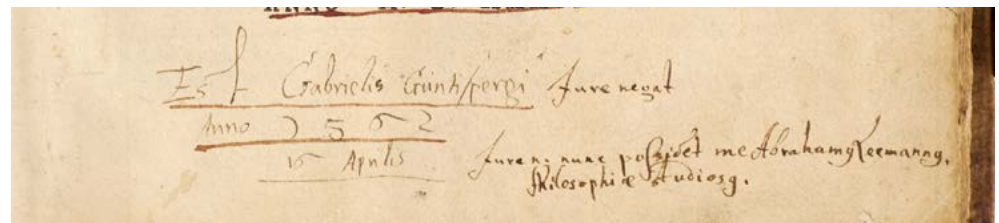 Est Gabrielis Güntispergi Jure negat
Anno 1562
16 Aprilis
Jure n. nunc possidet me Abrahamꝰ Leemannꝰ.
Philosophiæ Studiosꝰ.